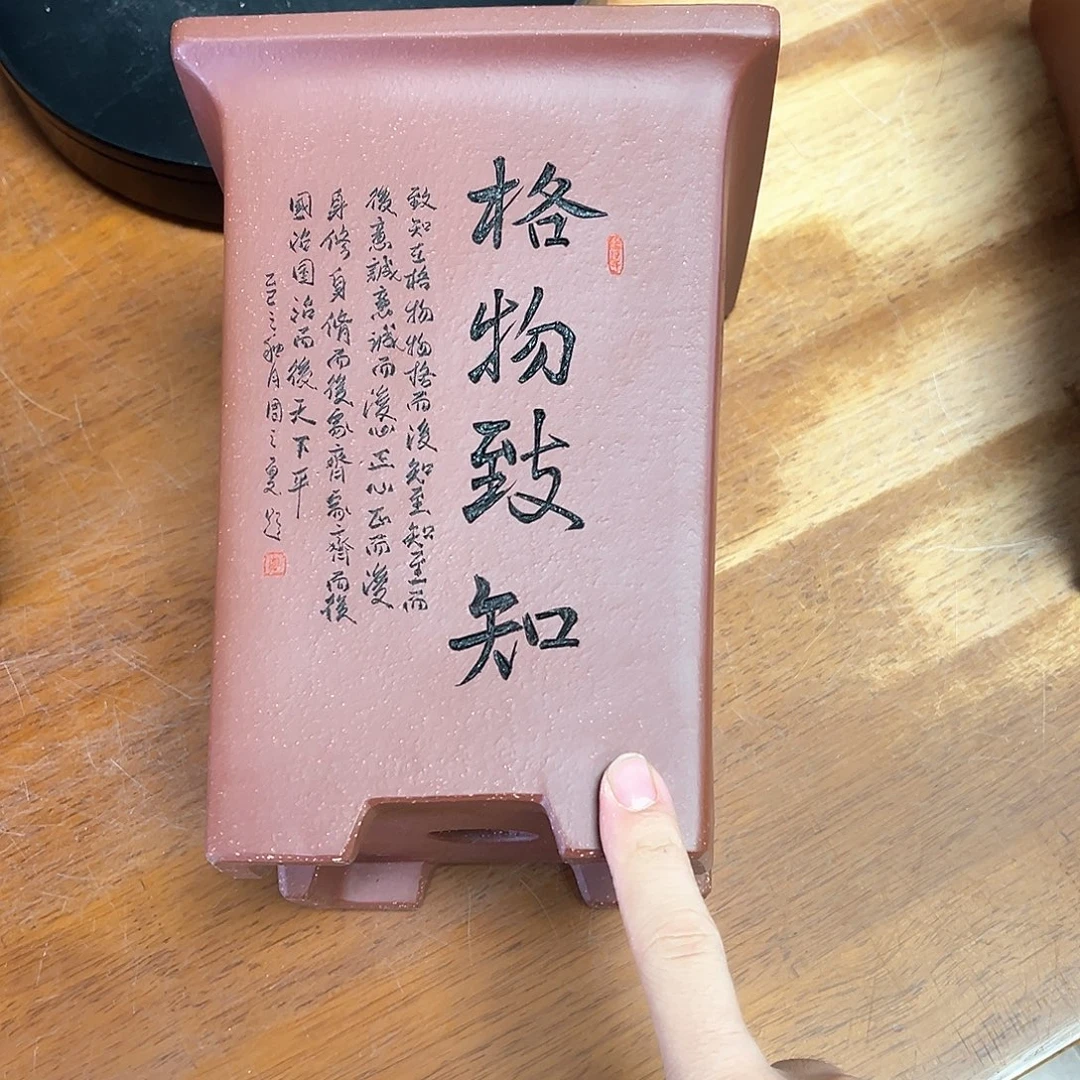 格物致知
致知在格物物格而後知至知至而
後意誠意誠而後心正心正而後
身修身脩而後家齊家齊而後
國治国治而後天下平
乙巳之秋月周之題